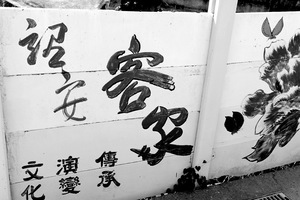 詔安
客家
傳承
演變
文化